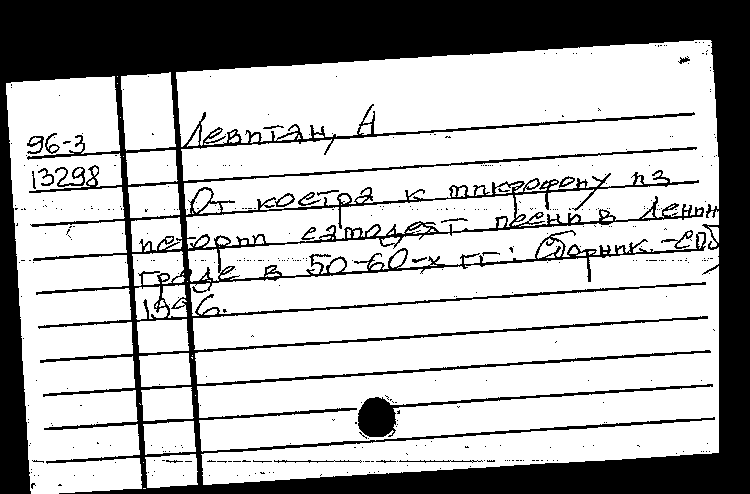 96-3
13298
Левитан, А
От костра к микрофону из
истории самодеят. песни в Ленин
граде в 50-60-х гг: Сборник. -СПб,
1996.